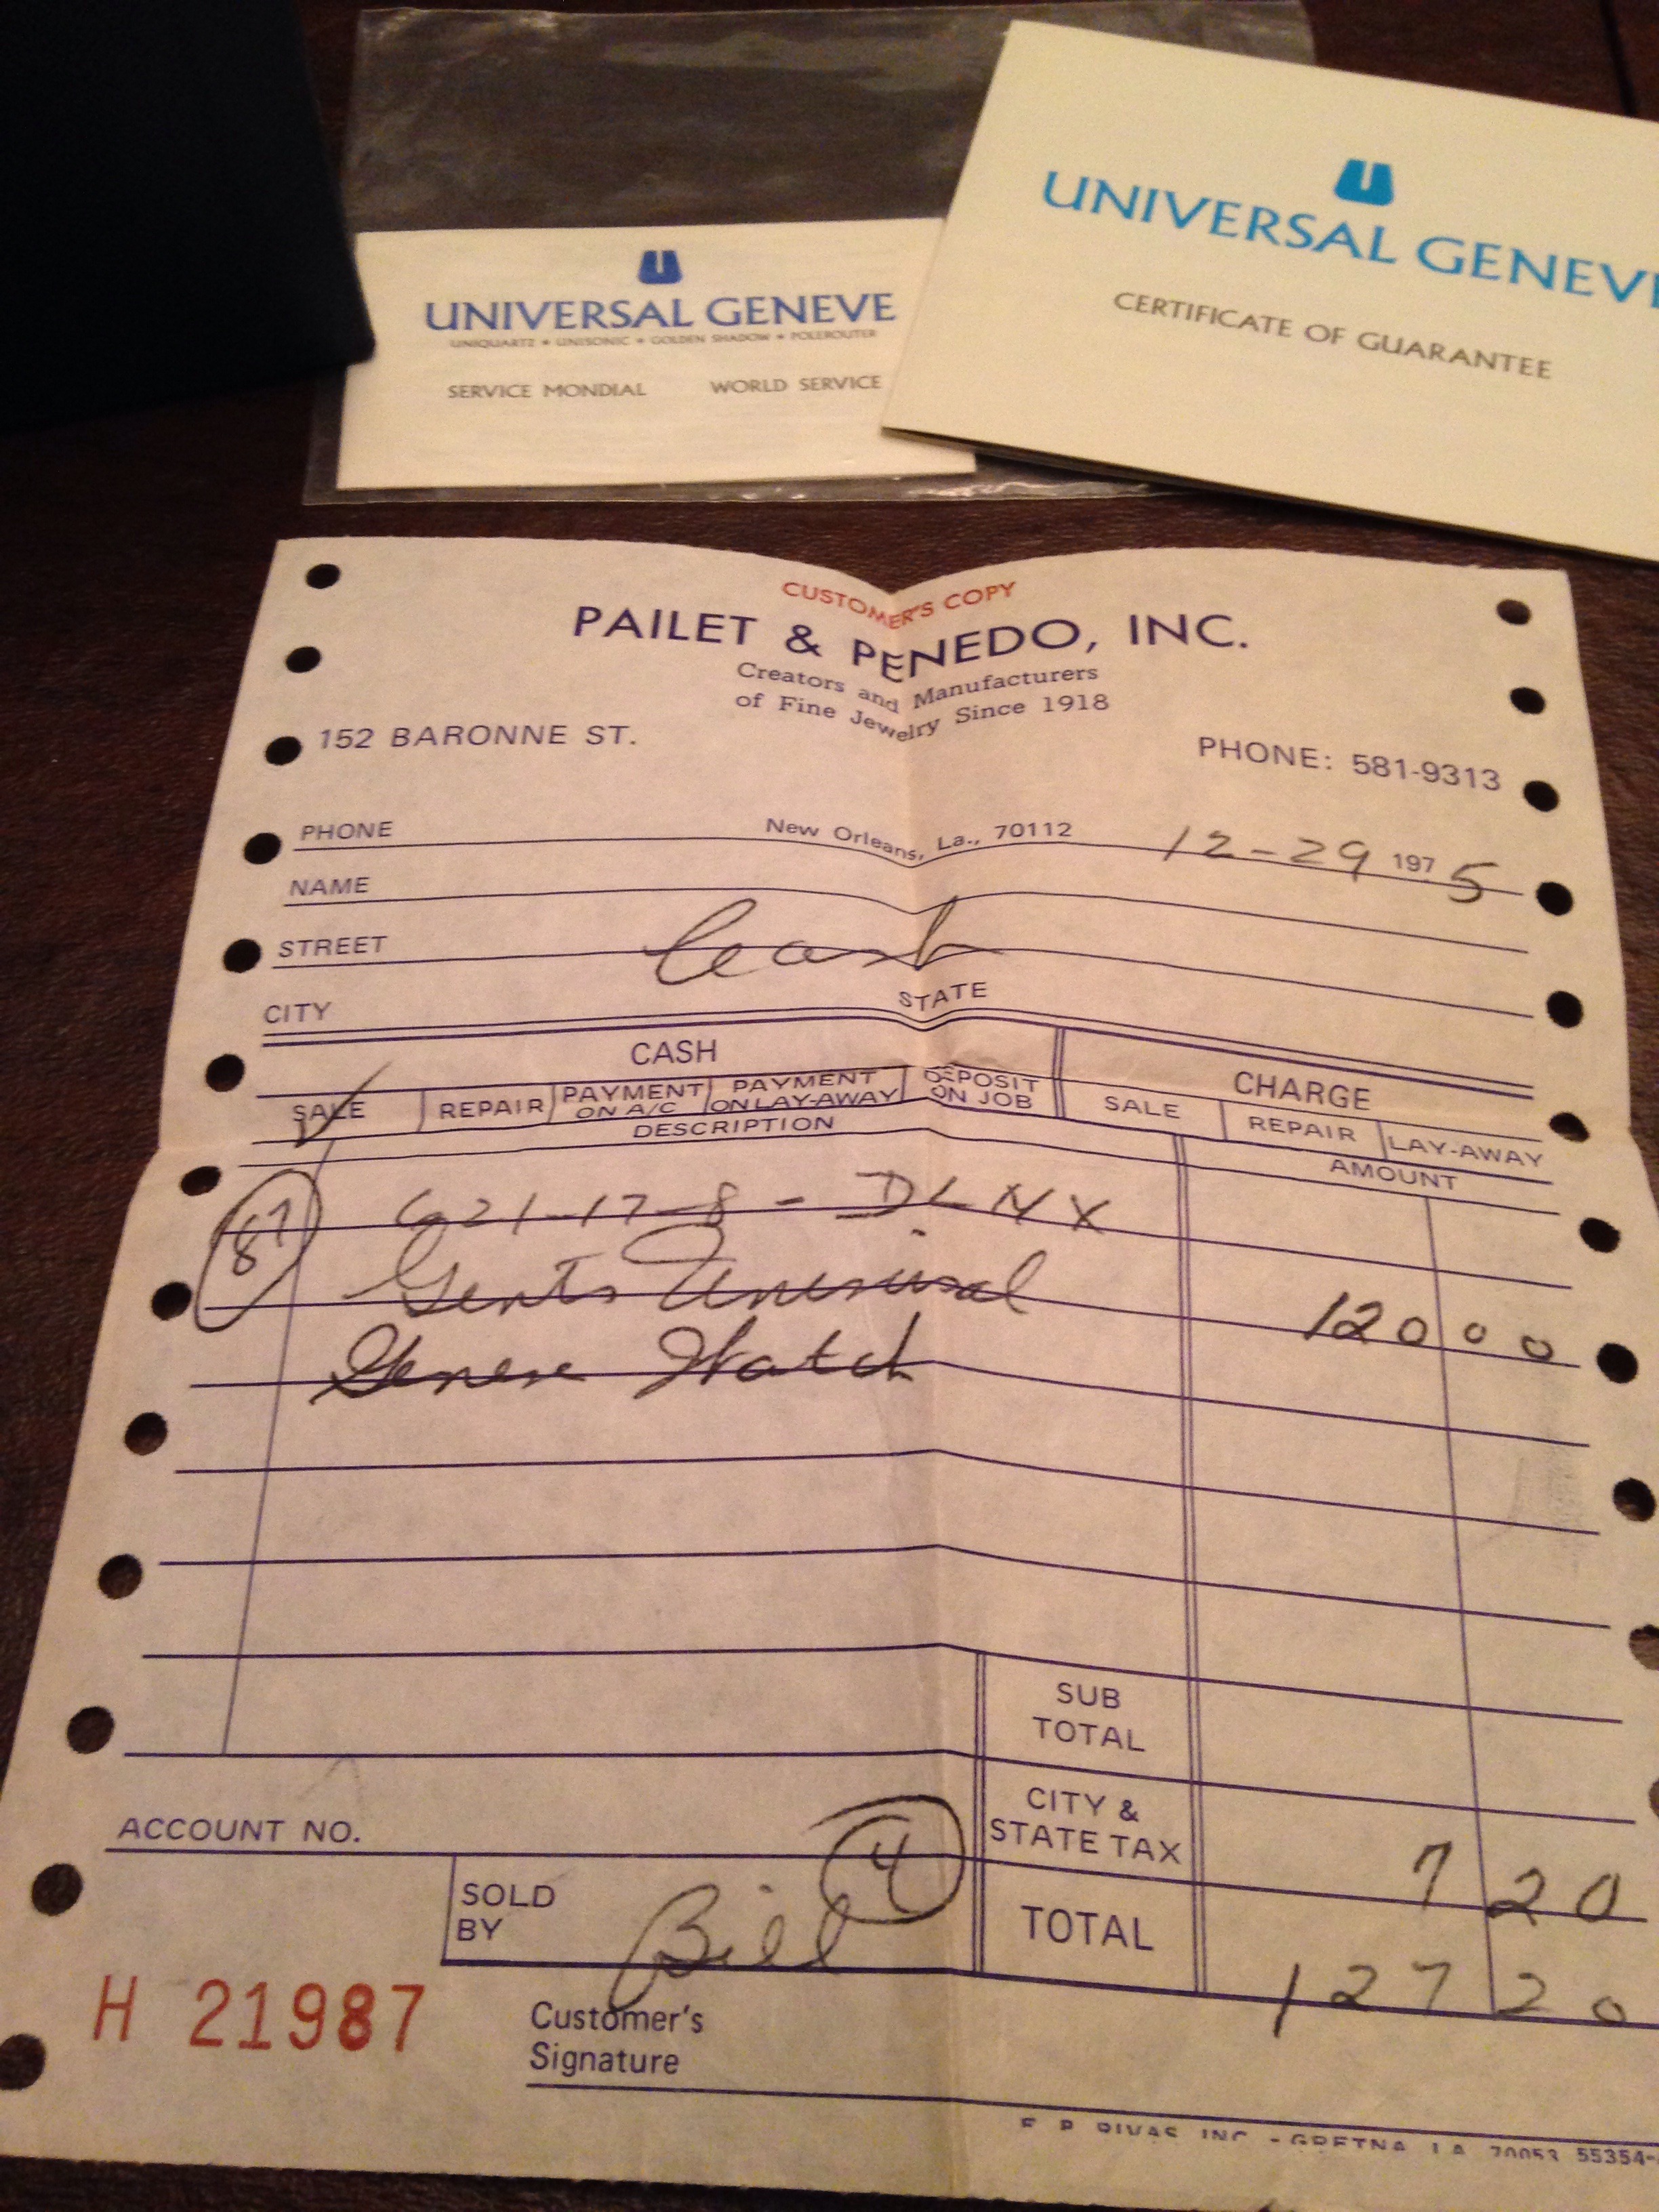 UNIVERSAL GENEVE
UNIQUARTZ • UNISONIC • GOLDEN SHADOW • POLEROUTER
SERVICE MONDIAL WORLD SERVICE
UNIVERSAL GENEVE
CERTIFICATE OF GUARANTEE
CUSTOMER'S COPY
PAILET & PENEDO, INC.
Creators and Manufacturers
of Fine Jewelry Since 1918
152 BARONNE ST. PHONE: 581-9313
PHONE New Orleans, La., 70112 12-29 1975
NAME
STREET Cash
CITY STATE
CASH CHARGE
SALE REPAIR PAYMENT ON A/C PAYMENT ON LAY-AWAY DEPOSIT ON JOB SALE REPAIR LAY-AWAY
DESCRIPTION AMOUNT
87 621-17-8 - DLNX
Gents Universal 120 00
Geneve Watch
SUB
TOTAL
CITY &
STATE TAX 7 20
ACCOUNT NO.
SOLD
BY Bill 4 TOTAL 127 20
H 21987 Customer's
Signature
RIVAS INC. - GRETNA LA 70053 55354-